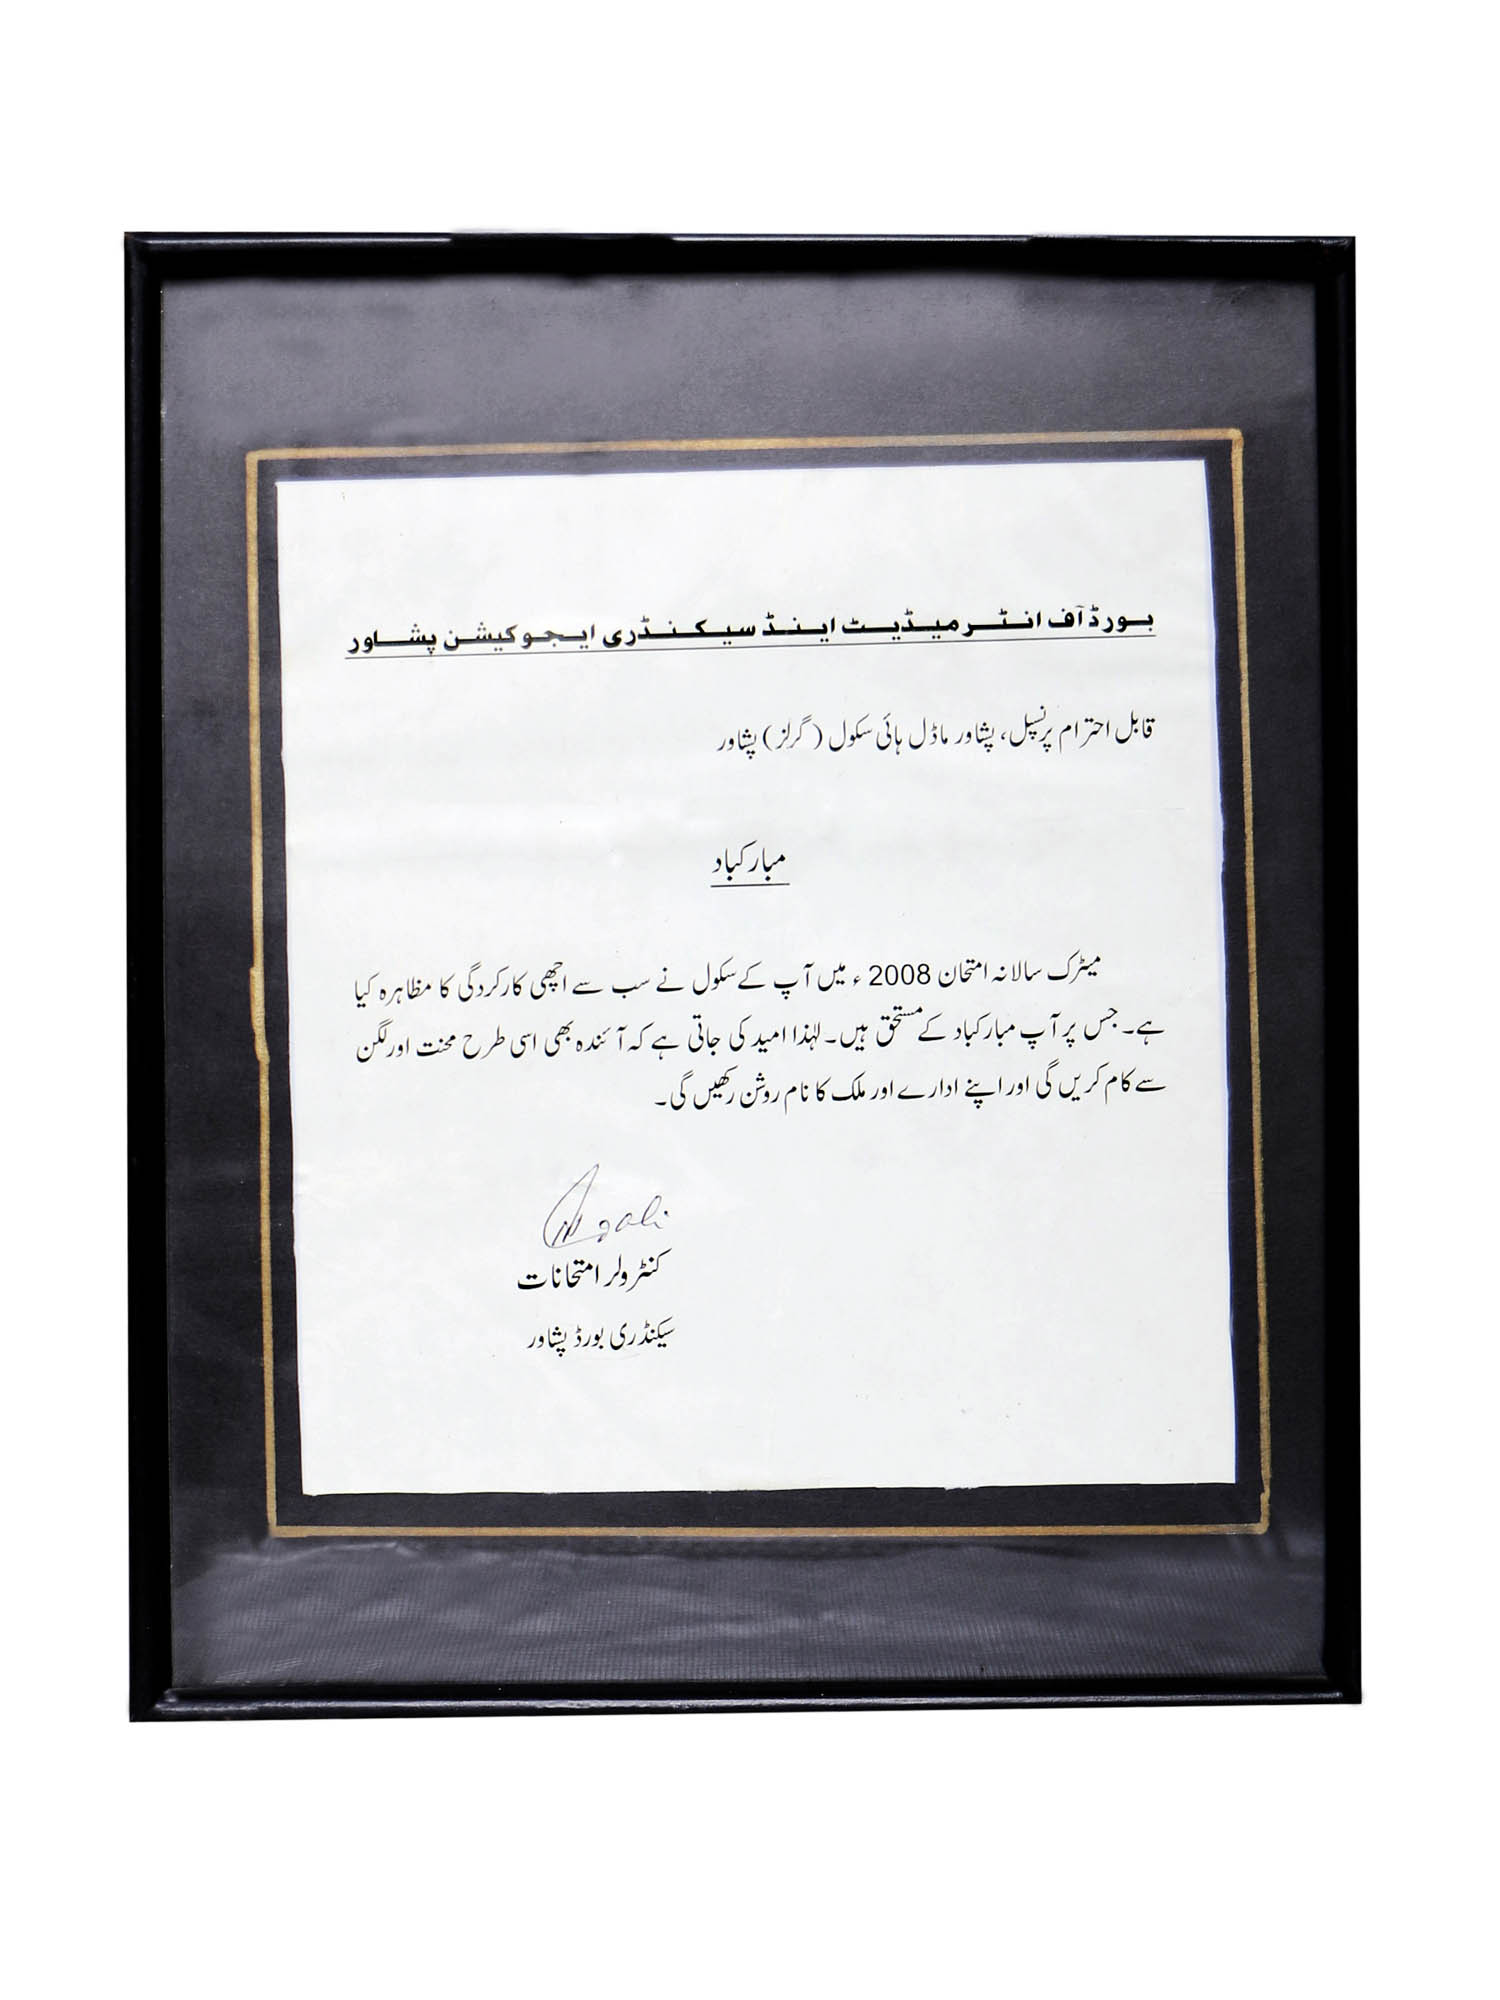 بورڈ آف انٹرمیڈیٹ اینڈ سیکنڈری ایجوکیشن پشاور
قابل احترام پرنسپل، پشاور ماڈل ہائی سکول (گرلز) پشاور
مبارکباد
میٹرک سالانہ امتحان 2008 ء میں آپ کے سکول نے سب سے اچھی کارکردگی کا مظاہرہ کیا
ہے۔ جس پر آپ مبارکباد کے مستحق ہیں۔ لہٰذا امید کی جاتی ہے کہ آئندہ بھی اسی طرح محنت اور لگن
سے کام کریں گی اور اپنے ادارے اور ملک کا نام روشن رکھیں گی۔
کنٹرولر امتحانات
سیکنڈری بورڈ پشاور